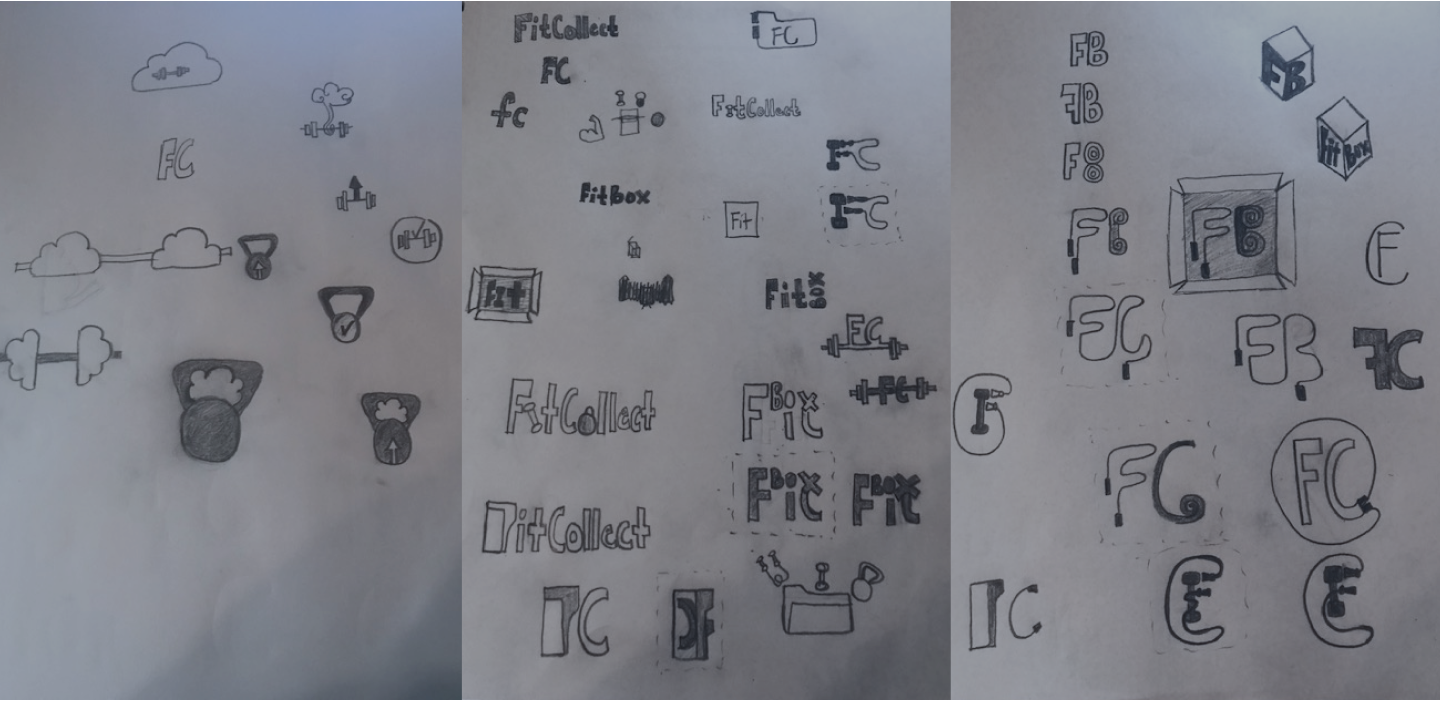 FC
FitCollect
FC
FC
fc
FitCollect
FC
FitBox
Fit
FC
Fit
Fit
BOX
FC
FC
FitCollect
Fit
Box
Fit
Box
Fit
BOX
FitCollect
FC
FB
FB
FB
FB
Fit Box
FB
FB
FC
FC
FB
FC
FC
FC
FC